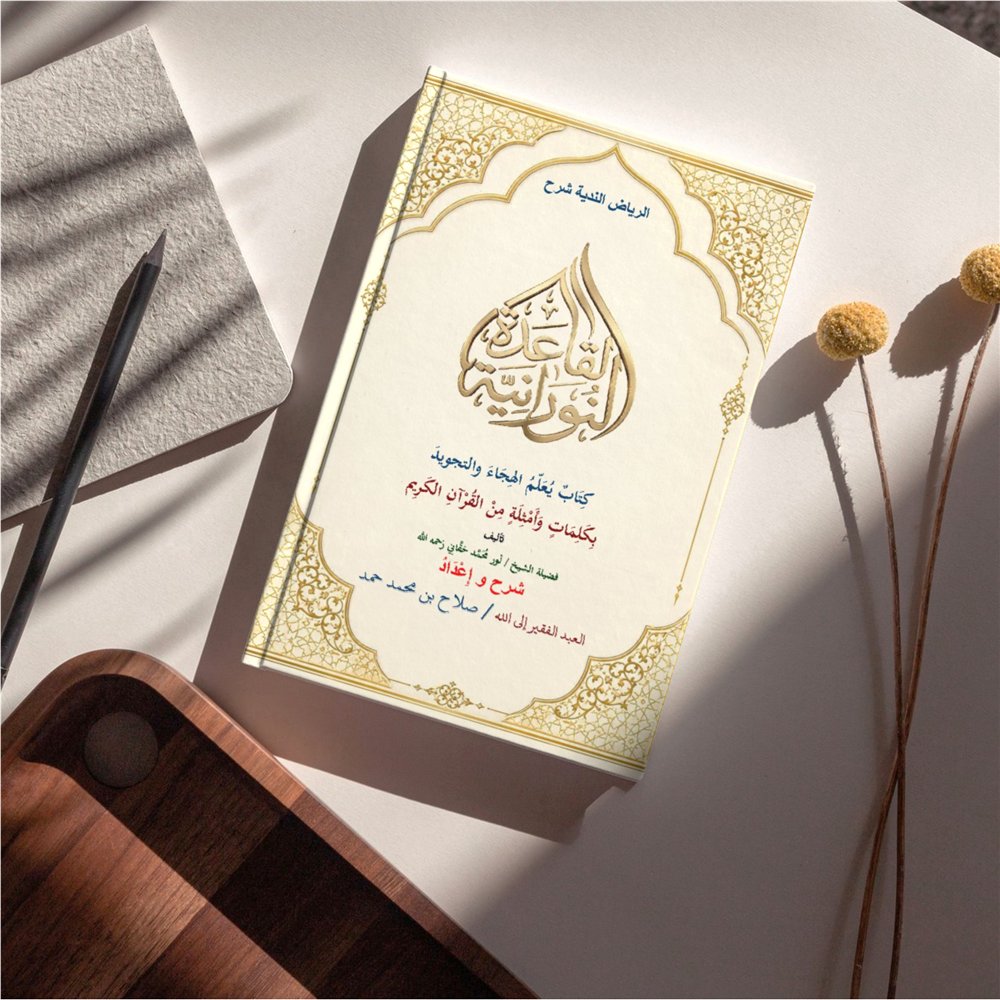 الرياض الندية شرح
القَاعَدَة
النُورَانِيَّة
كِتَابٌ يُعَلّمُ الهِجَاءَ والتجويدَ
بِكَلِمَاتٍ وَأَمْثِلَةٍ مِنْ القُرْآنِ الكَرِيم
تأليف
فضيلة الشيخ / نور محمد حقاني رحمه الله
شرح و إعْدَادُ
العبد الفقير إلى الله / صلاح بن محمد حمد